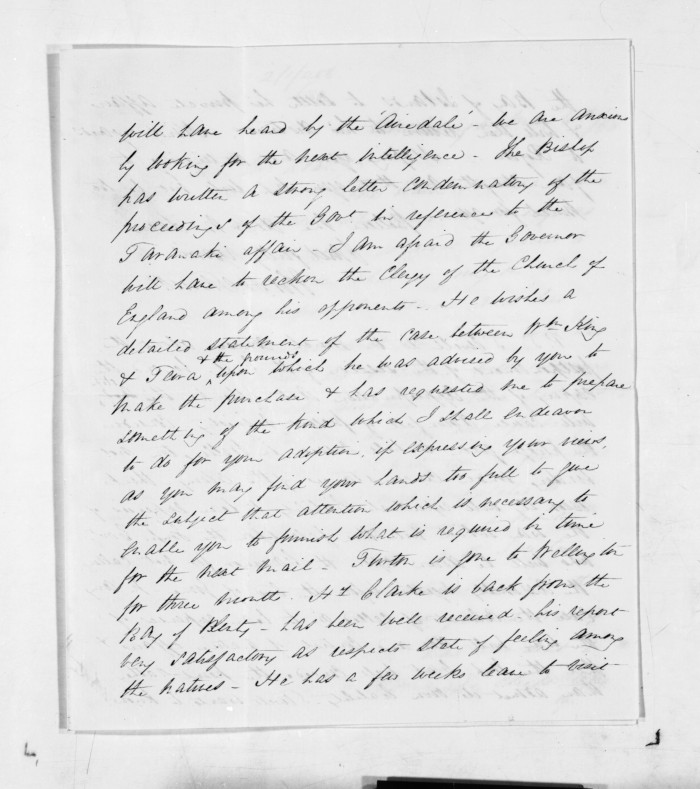 will have heard by the 'Airedale' - we are anxious
ly looking for the next intelligence - The Bishop
has written a strong letter condemnatory of the
proceedings of the Govt. in reference to the
Taranaki affair - I am afraid the Governor
will have to reckon the Clergy of the Church of
England among his opponents - He wishes a
detailed statement of the case between Wm King
& the grounds
& Teira upon which he was advised by you to
make the purchase & has requested me to prepare
something of the kind which I shall endeavor
to do for your adoption, if expressing your views,
as you may find your hands too full to give
the subject that attention which is necessary to
enable you to furnish what is required in time
for the next mail - Turton is gone to Wellington
for three months. Hy Clarke is back from the
Bay of Plenty - has been well received - his report
very satisfactory as respects state of feeling among
the natives - He has a few weeks leave to visit